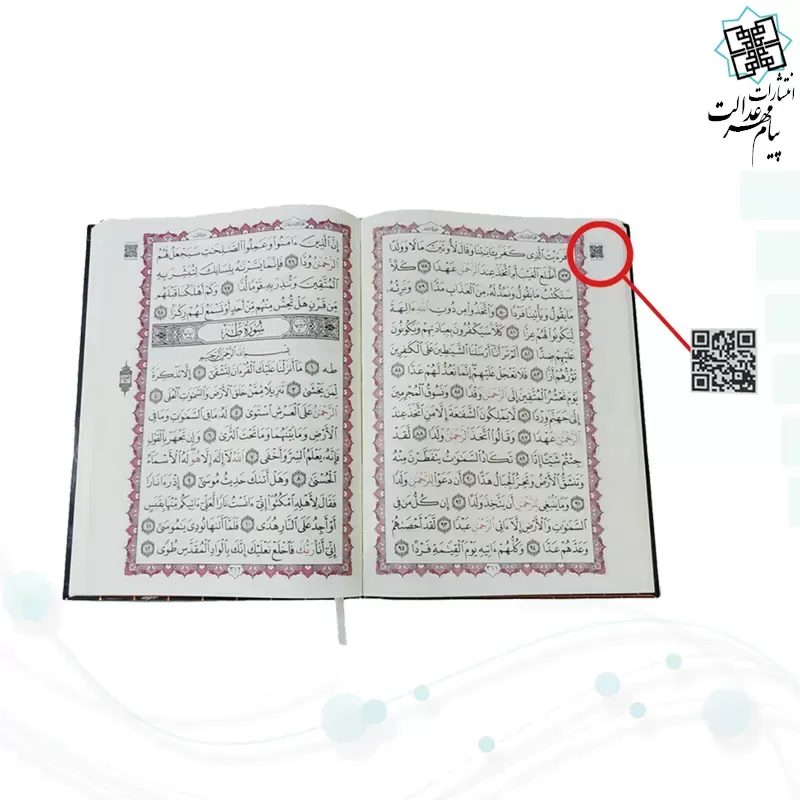 انتشارات
پیام مهر عدالت
أَفَرَءَيْتَ ٱلَّذِى كَفَرَ بِـَٔايَٰتِنَا وَقَالَ لَأُوتَيَنَّ مَالًا وَوَلَدًا
٧٧ أَطَّلَعَ ٱلْغَيْبَ أَمِ ٱتَّخَذَ عِندَ ٱلرَّحْمَٰنِ عَهْدًا ٧٨ كَلَّا
سَنَكْتُبُ مَا يَقُولُ وَنَمُدُّ لَهُۥ مِنَ ٱلْعَذَابِ مَدًّا ٧٩ وَنَرِثُهُۥ
مَا يَقُولُ وَيَأْتِينَا فَرْدًا ٨٠ وَٱتَّخَذُوا۟ مِن دُونِ ٱللَّهِ ءَالِهَةً
لِّيَكُونُوا۟ لَهُمْ عِزًّا ٨١ كَلَّا سَيَكْفُرُونَ بِعِبَادَتِهِمْ وَيَكُونُونَ
عَلَيْهِمْ ضِدًّا ٨٢ أَلَمْ تَرَ أَنَّآ أَرْسَلْنَا ٱلشَّيَٰطِينَ عَلَى ٱلْكَٰفِرِينَ
تَؤُزُّهُمْ أَزًّا ٨٣ فَلَا تَعْجَلْ عَلَيْهِمْ إِنَّمَا نَعُدُّ لَهُمْ عَدًّا ٨٤
يَوْمَ نَحْشُرُ ٱلْمُتَّقِينَ إِلَى ٱلرَّحْمَٰنِ وَفْدًا ٨٥ وَنَسُوقُ ٱلْمُجْرِمِينَ
إِلَىٰ جَهَنَّمَ وِرْدًا ٨٦ لَّا يَمْلِكُونَ ٱلشَّفَٰعَةَ إِلَّا مَنِ ٱتَّخَذَ عِندَ
ٱلرَّحْمَٰنِ عَهْدًا ٨٧ وَقَالُوا۟ ٱتَّخَذَ ٱلرَّحْمَٰنُ وَلَدًا ٨٨ لَّقَدْ
جِئْتُمْ شَيْـًٔا إِدًّا ٨٩ تَكَادُ ٱلسَّمَٰوَٰتُ يَتَفَطَّرْنَ مِنْهُ
وَتَنشَقُّ ٱلْأَرْضُ وَتَخِرُّ ٱلْجِبَالُ هَدًّا ٩٠ أَن دَعَوْا۟ لِلرَّحْمَٰنِ وَلَدًا
٩١ وَمَا يَنۢبَغِى لِلرَّحْمَٰنِ أَن يَتَّخِذَ وَلَدًا ٩٢ إِن كُلُّ مَن فِى
ٱلسَّمَٰوَٰتِ وَٱلْأَرْضِ إِلَّآ ءَاتِى ٱلرَّحْمَٰنِ عَبْدًا ٩٣ لَّقَدْ أَحْصَىٰهُمْ
وَعَدَّهُمْ عَدًّا ٩٤ وَكُلُّهُمْ ءَاتِيهِ يَوْمَ ٱلْقِيَٰمَةِ فَرْدًا ٩٥
٣١١
إِنَّ ٱلَّذِينَ ءَامَنُوا۟ وَعَمِلُوا۟ ٱلصَّٰلِحَٰتِ سَيَجْعَلُ لَهُمُ
ٱلرَّحْمَٰنُ وُدًّا ٩٦ فَإِنَّمَا يَسَّرْنَٰهُ بِلِسَانِكَ لِتُبَشِّرَ بِهِ
ٱلْمُتَّقِينَ وَتُنذِرَ بِهِۦ قَوْمًا لُّدًّا ٩٧ وَكَمْ أَهْلَكْنَا قَبْلَهُم
مِّن قَرْنٍ هَلْ تُحِسُّ مِنْهُم مِّنْ أَحَدٍ أَوْ تَسْمَعُ لَهُمْ رِكْزًۢا ٩٨
سُورَةُ طه
بِسْمِ ٱللَّهِ ٱلرَّحْمَٰنِ ٱلرَّحِيمِ
طه ١ مَآ أَنزَلْنَا عَلَيْكَ ٱلْقُرْءَانَ لِتَشْقَىٰٓ ٢ إِلَّا تَذْكِرَةً
لِّمَن يَخْشَىٰ ٣ تَنزِيلًا مِّمَّنْ خَلَقَ ٱلْأَرْضَ وَٱلسَّمَٰوَٰتِ ٱلْعُلَى ٤
ٱلرَّحْمَٰنُ عَلَى ٱلْعَرْشِ ٱسْتَوَىٰ ٥ لَهُۥ مَا فِى ٱلسَّمَٰوَٰتِ وَمَا فِى
ٱلْأَرْضِ وَمَا بَيْنَهُمَا وَمَا تَحْتَ ٱلثَّرَىٰ ٦ وَإِن تَجْهَرْ بِٱلْقَوْلِ
فَإِنَّهُۥ يَعْلَمُ ٱلسِّرَّ وَأَخْفَى ٧ ٱللَّهُ لَآ إِلَٰهَ إِلَّا هُوَ لَهُ ٱلْأَسْمَآءُ
ٱلْحُسْنَىٰ ٨ وَهَلْ أَتَىٰكَ حَدِيثُ مُوسَىٰٓ ٩ إِذْ رَءَا نَارًا
فَقَالَ لِأَهْلِهِ ٱمْكُثُوٓا۟ إِنِّىٓ ءَانَسْتُ نَارًا لَّعَلِّىٓ ءَاتِيكُم مِّنْهَا بِقَبَسٍ
أَوْ أَجِدُ عَلَى ٱلنَّارِ هُدًى ١٠ فَلَمَّآ أَتَىٰهَا نُودِىَ يَٰمُوسَىٰٓ ١١
إِنِّىٓ أَنَا۠ رَبُّكَ فَٱخْلَعْ نَعْلَيْكَ إِنَّكَ بِٱلْوَادِ ٱلْمُقَدَّسِ طُوًى ١٢
٣١٢